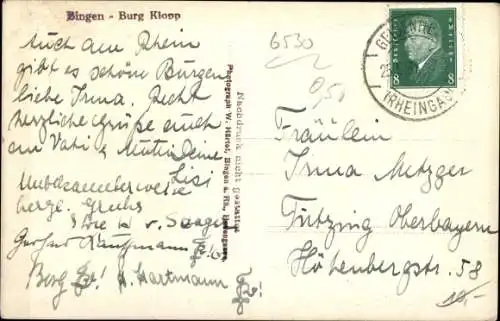 Bingen - Burg Klopp
Auch am Rhein
gibt es schöne Burgen
liebe Irma. Recht
herzliche Grüße auch
an Vati & Mutti Deine
Lisi
Unbekannterweise
Gerhard
Berg H! A. Hartmann
Photograph W. Härtel, Bingen a. Rh.
Nachdruck nicht gestattet
6530
0,50
DEUTSCHES REICH
8 8
(RHEINGAU)
Fräulein
Irma Metzger
Tutzing Oberbayern
Höhenbergstr. 58
10.-